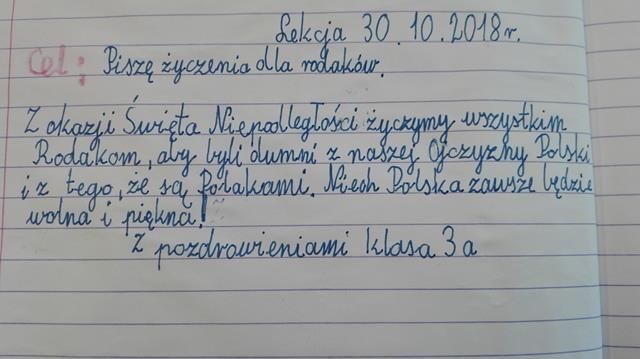 Lekcja 30.10.2018r.
Cel: Piszę życzenia dla rodaków.
Z okazji Święta Niepodległości życzymy wszystkim
Rodakom, aby byli dumni z naszej Ojczyzny Polski
i z tego, że są Polakami. Niech Polska zawsze będzie
wolna i piękna!
Z pozdrowieniami klasa 3a